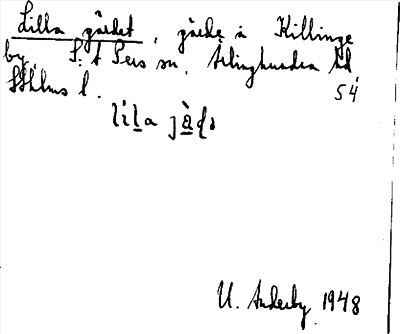 Lilla gärdet, gärde i Killinge
by, S:t Pers sn, Ärlinghundra hd,
Sthlms l. 54
lila
U. Anderby 1948